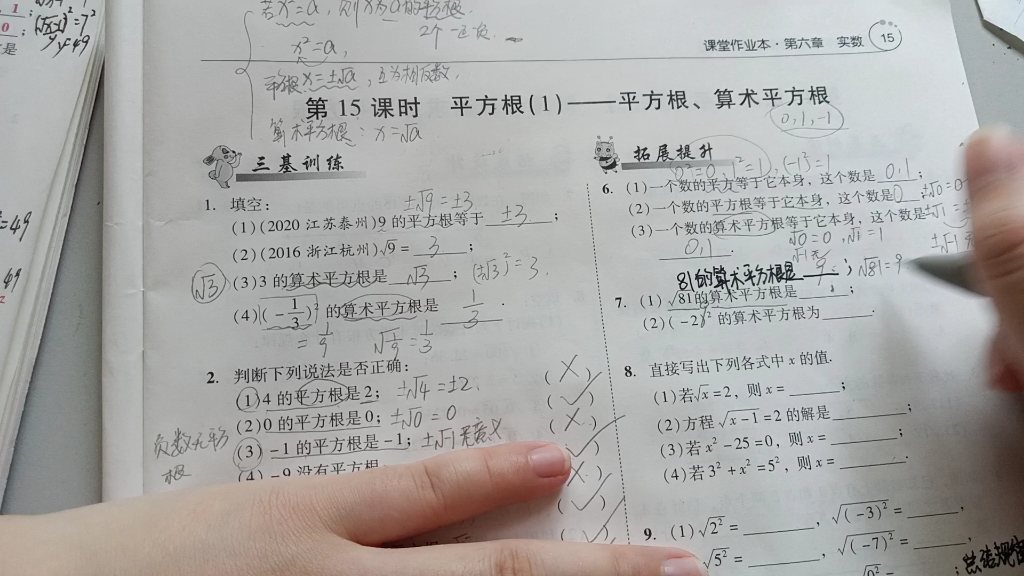 若x²=a，则x为a的平方根.
2个
x²=a，
平方根x=±√a，互为相反数.
算术平方根：x=√a
课堂作业本·第六章 实数 15
第 15 课时 平方根(1)——平方根、算术平方根
0,1,-1
三基训练
1. 填空：
±√9=±3
(1)(2020 江苏泰州)9 的平方根等于 ±3 ；
(2)(2016 浙江杭州)√9= 3 ；
√3
(3)3 的算术平方根是 √3 ；(±√3)²=3.
(4)(-1/3)² 的算术平方根是 1/3 .
=1/9 √1/9=1/3
2. 判断下列说法是否正确：
(1)4 的平方根是 2；±√4=±2. (×)
(2)0 的平方根是 0；±√0=0 (✓)
(3)-1 的平方根是-1；±√-1无意义 (×)
负数无平方
根
(4)-9 没有平方根
拓展提升
0²=0，1²=1，(-1)²=1
6. (1)一个数的平方等于它本身，这个数是 0,1 .
(2)一个数的平方根等于它本身，这个数是 0 ±√0=0
(3)一个数的算术平方根等于它本身，这个数是
0,1 . √0=0，√1=1
81的算术平方根是 9 ；√81=9
7. (1)√81的算术平方根是 ；
(2)(-2)² 的算术平方根为 .
8. 直接写出下列各式中 x 的值.
(1)若√x=2，则 x= ；
(2)方程 √x-1=2 的解是 ；
(3)若 x²-25=0，则 x= ；
(4)若 3²+x²=5²，则 x= .
9. (1)√2²= ，√(-3)²= ，
√5²= ，√(-7)²= ，
√0²= ；
49
=49
49